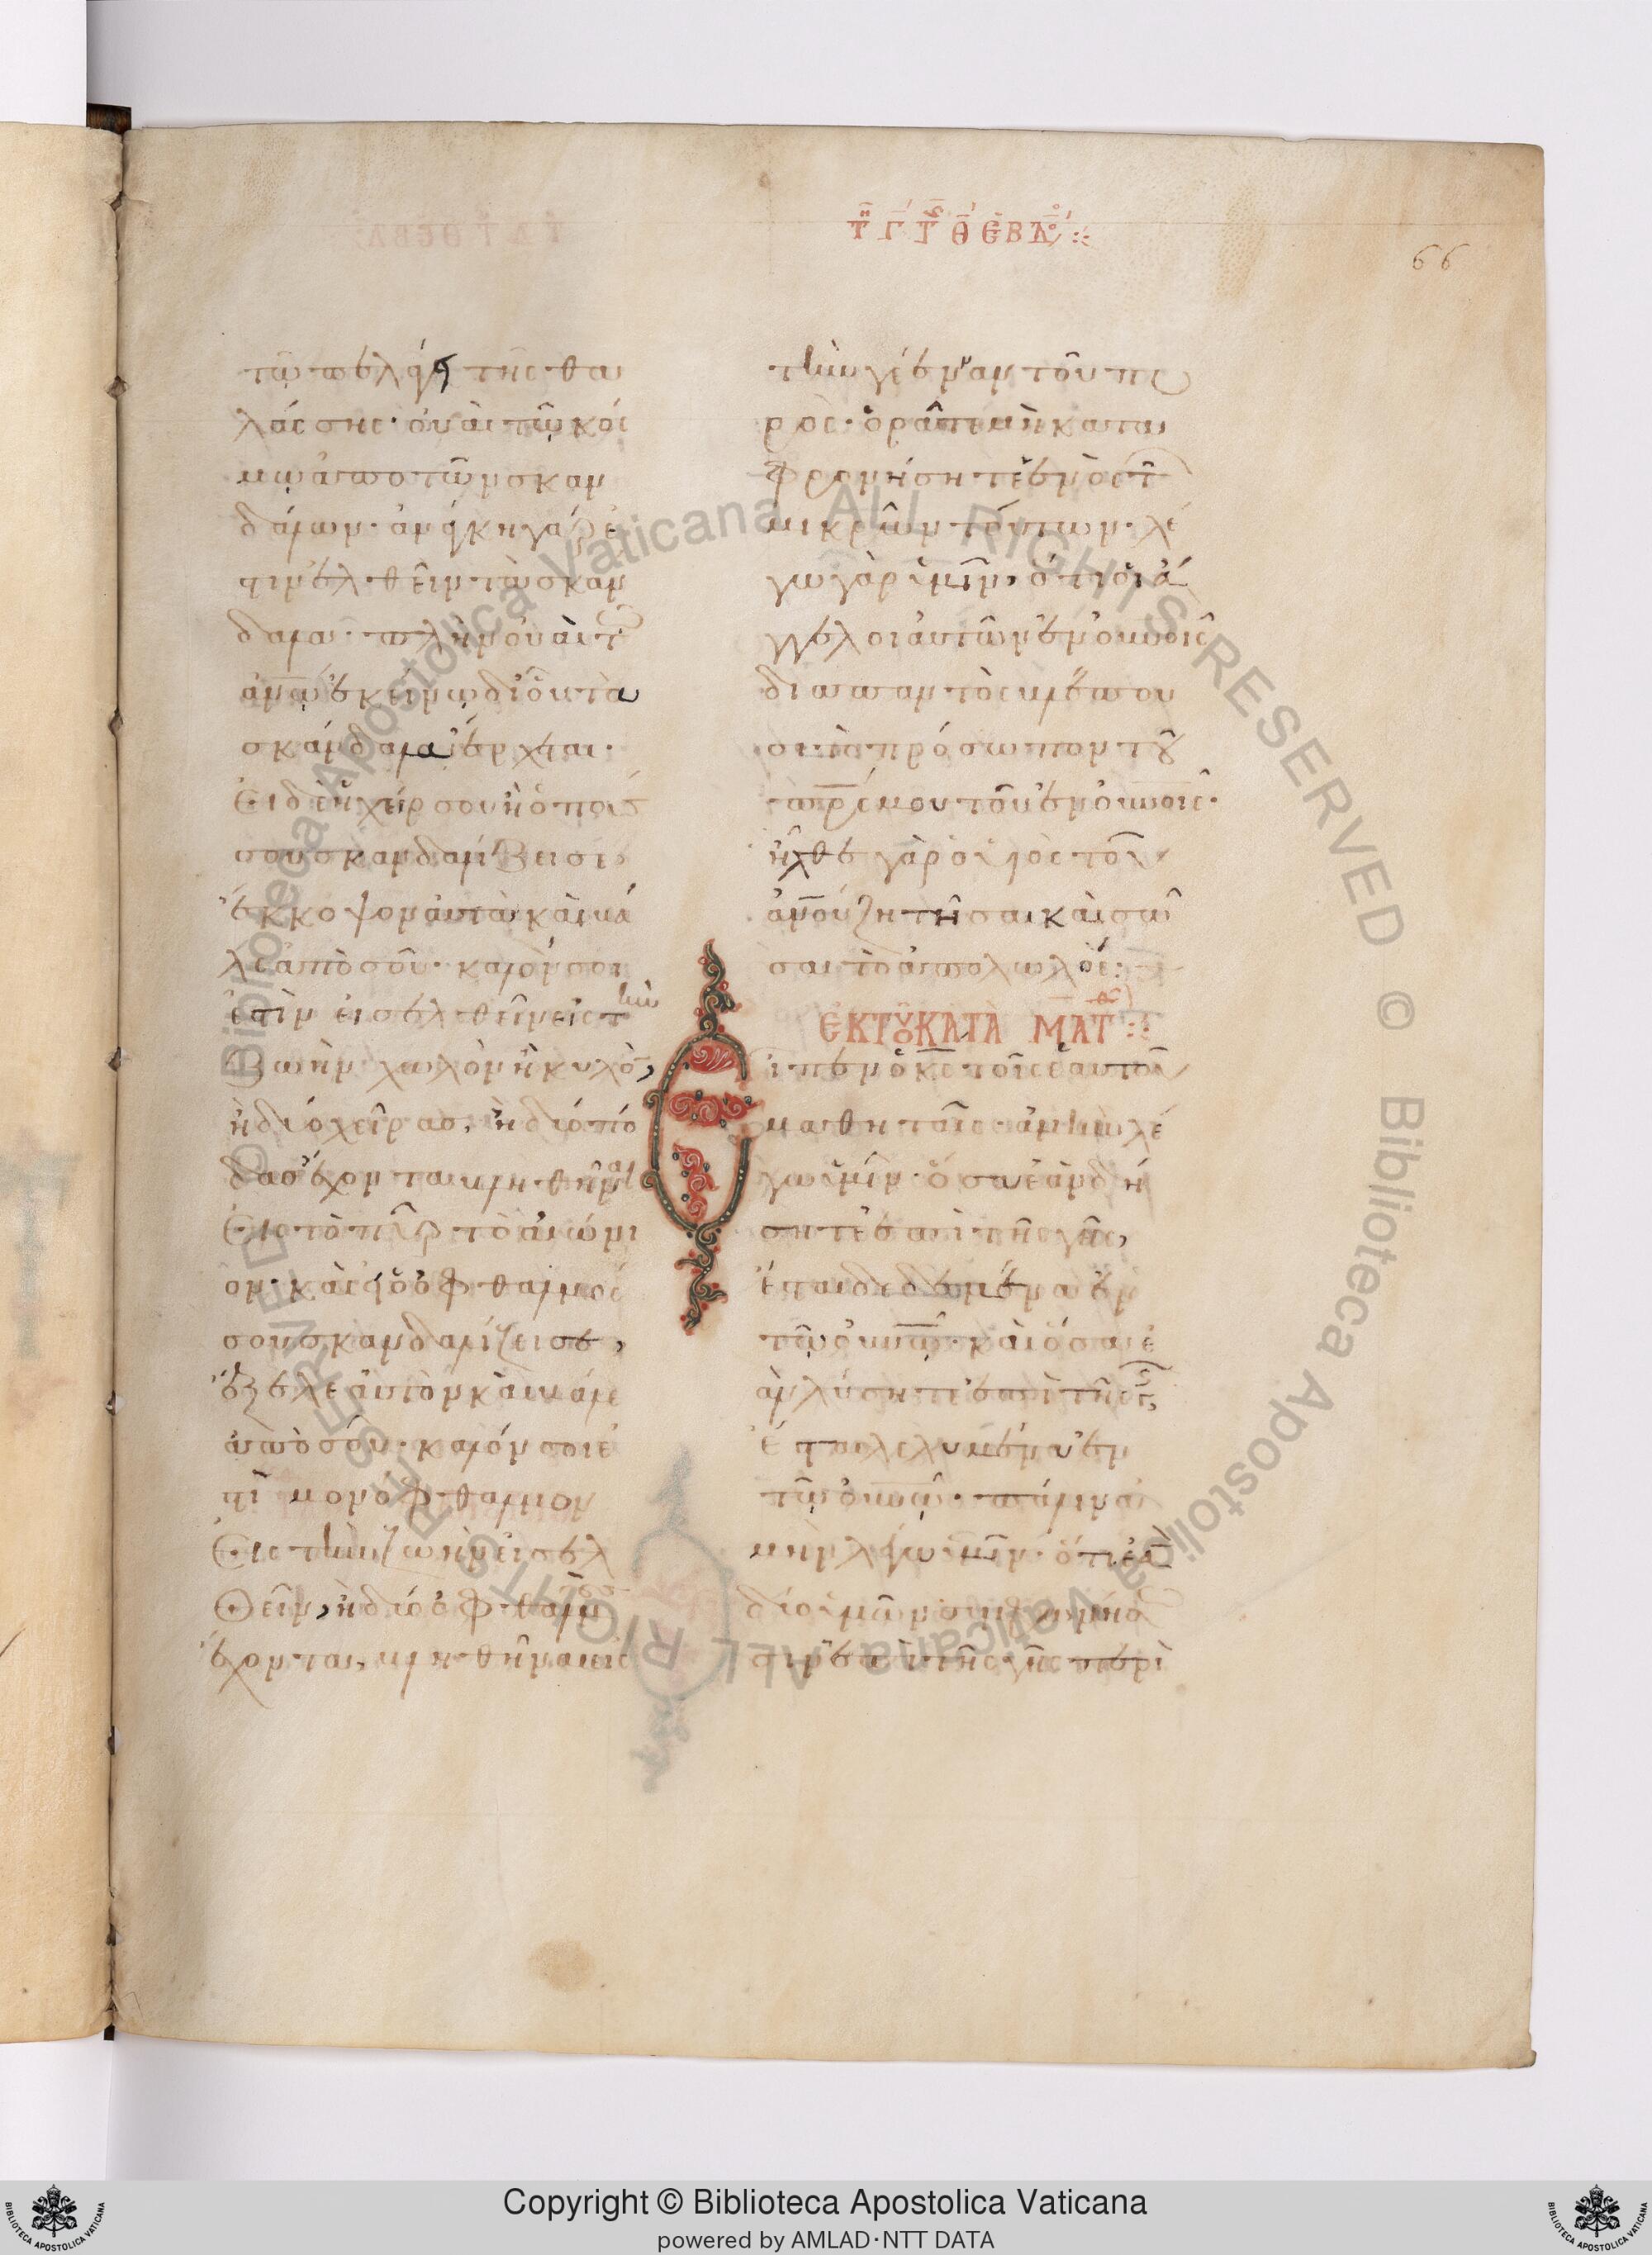 τῆ γ τῆς θ ἑβδ
66
τῶ πελάγει τῆς θα
λάσσης· οὐαὶ τῶ κόσ
μω ἀπὸ τῶν σκαν
δάλων· ἀνάγκη γάρ ἐ
στιν ἐλθεῖν τὰ σκαν
δαλα· πλὴν οὐαὶ τῶ
ἀνω ἐκείνω δι' οὗ τὰ
σκάνδαλα ἔρχεται·
Εἰ δὲ ἡ χείρ σου ἢ ὁ πούς
σου σκανδαλίζει σε
ἔκκοψον αὐτὰ καὶ βά
λε ἀπὸ σοῦ· καλόν σοι
ἐστὶν εἰσελθεῖν εἰς τὴν
ζωὴν χωλὸν ἢ κυλὸν,
ἢ δύο χεῖρας, ἢ δύο πό
δας ἔχοντα βληθῆναι
Εἰς τὸ πῦρ τὸ αἰώνι
ον· καὶ εἰ ὁ ὀφθαλμός
σου σκανδαλίζει σε,
ἔξελε αὐτὸν καὶ βάλε
ἀπὸ σοῦ· καλόν σοι ἐ
στὶ μονόφθαλμον
Εἰς τὴν ζωὴν εἰσελ
Θεῖν, ἢ δύο ὀφθαλμοὺς
ἔχοντα, βληθῆναι εἰς
τὴν γέενναν τοῦ πυ
ρός· ὁρᾶτε μὴ κατα
φρονήσητε ἑνὸς τῶν
μικρῶν τούτων· λέ
γω γὰρ ὑμῖν, ὅτι οἱ ἄ
γγελοι αὐτῶν ἐν οὐνοις
διαπαντὸς βλέπου
σι τὸ πρόσωπον τοῦ
πρς μου τοῦ ἐν οὐνοις·
ἦλθε γὰρ ὁ υἱὸς τοῦ
ἀνου ζητῆσαι καὶ σῶ
σαι τὸ ἀπολωλός:
ἘΚ ΤΟΥ ΚΑΤΑ ΜΑΤΘ
Εἶπεν ὁ κς τοῖς ἑαυτοῦ
μαθηταῖς· ἀμὴν λέ
γω ὑμῖν· ὅσα ἐὰν δή
σητε ἐπὶ τῆς γῆς,
ἔσται δεδεμένα ἐν
τῶ οὐνω· καὶ ὅσα ἐ
ὰν λύσητε ἐπὶ τῆς γῆς,
ἔσται λελυμένα ἐν
τῶ οὐνω· πάλιν ἀ
μὴν λέγω ὑμῖν· ὅτι ἐὰν
δύο ὑμῶν συμφωνήσω
σιν ἐπὶ τῆς γῆς περὶ
© Biblioteca Apostolica Vaticana ALL RIGHTS RESERVED © Biblioteca Apostolica Vaticana ALL RIGHTS RESERVED
Copyright © Biblioteca Apostolica Vaticana
powered by AMLAD·NTT DATA
BIBLIOTECA APOSTOLICA VATICANA
BIBLIOTECA APOSTOLICA VATICANA